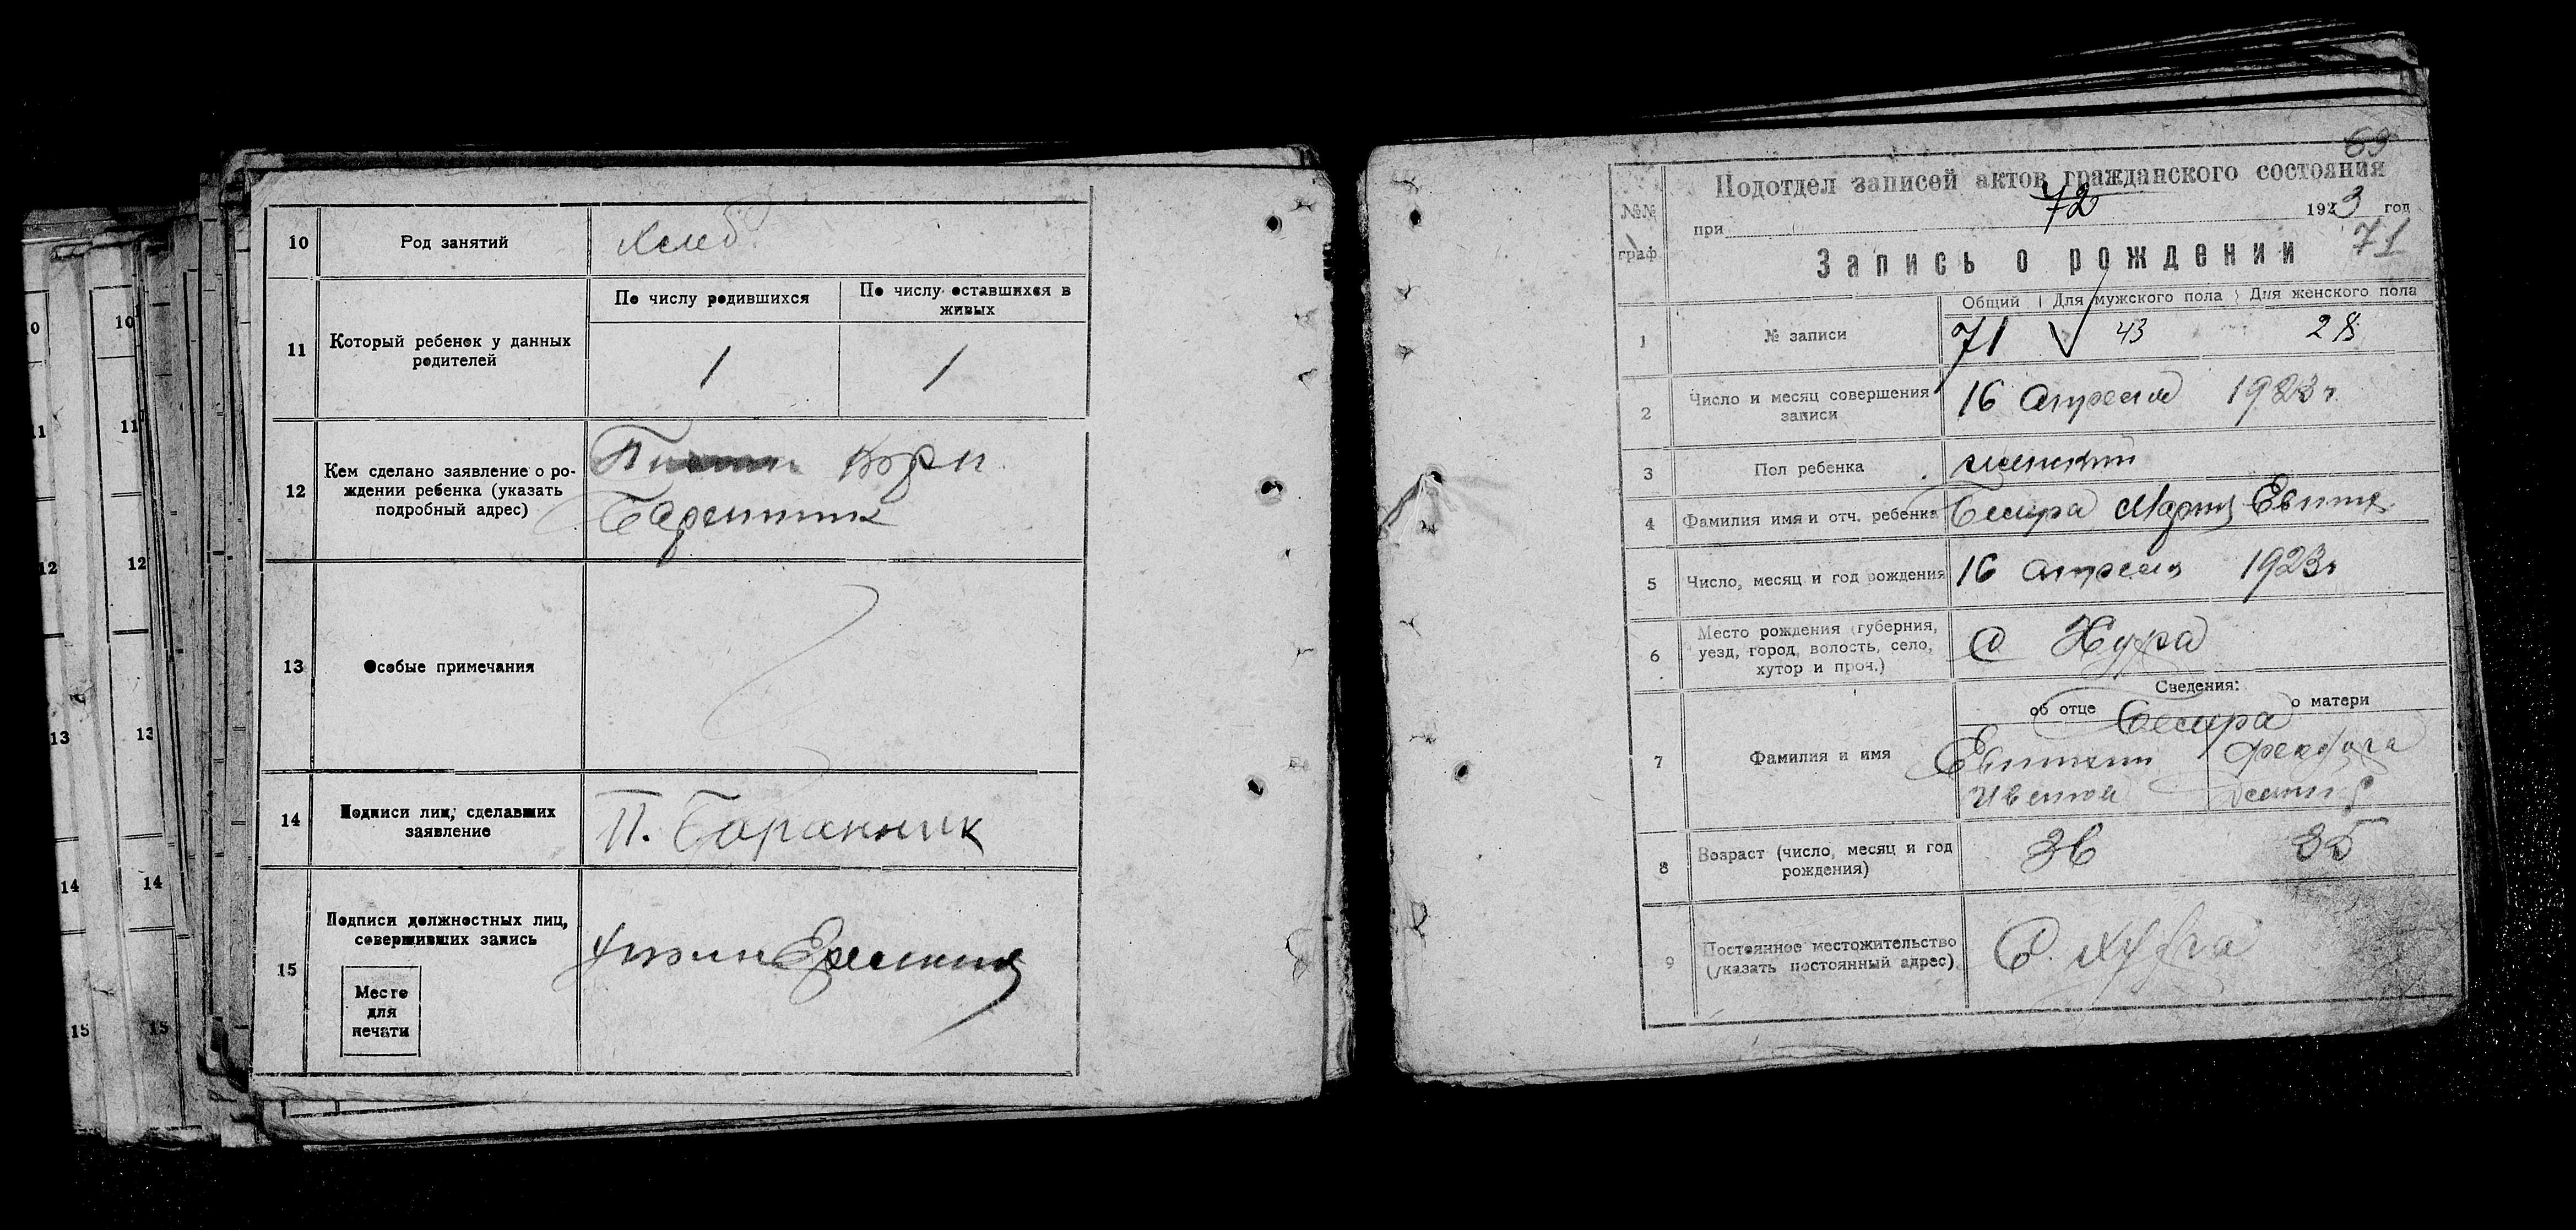 10 Род занятий Хлеб
11 Который ребенок у данных родителей
По числу родившихся
По числу оставшихся в живых
1 1
12 Кем сделано заявление о ро-
ждении ребенка (указать
подробный адрес)
13 Особые примечания
14 Подписи лиц, сделавших
заявление
П. Баранник
15 Подписи должностных лиц,
совершивших запись
Место
для
печати
0
10
11
11
12
12
13
13
14
14
15
15
69
Подотдел записей актов гражданского состояния
72
№№
граф.
при 1923 год
71
Запись о рождении
Общий Для мужского пола Для женского пола
1 № записи 71 43 28
2 Число и месяц совершения
записи
16 апреля 1923 г.
3 Пол ребенка женский
4 Фамилия имя и отч. ребенка Мария
5 Число, месяц и год рождения 16 апреля 1923 г
6 Место рождения (губерния,
уезд, город, волость, село,
хутор и проч.)
С
Сведения:
об отце о матери
7 Фамилия и имя
8 Возраст (число, месяц и год
рождения)
36 35
9 Постоянное местожительство
(указать постоянный адрес)
С.